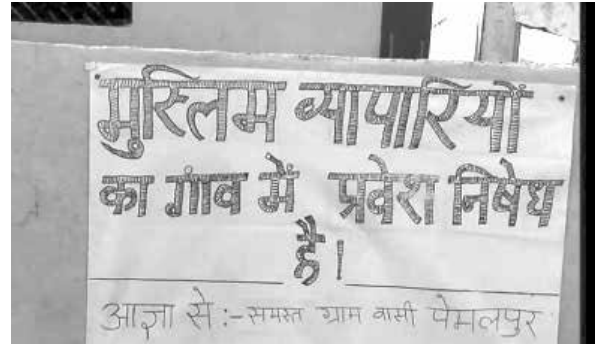 मुस्लिम व्यापारियों
का गांव में प्रवेश निषेध
है।
आज्ञा से :- समस्त ग्राम वासी पेमलपुर